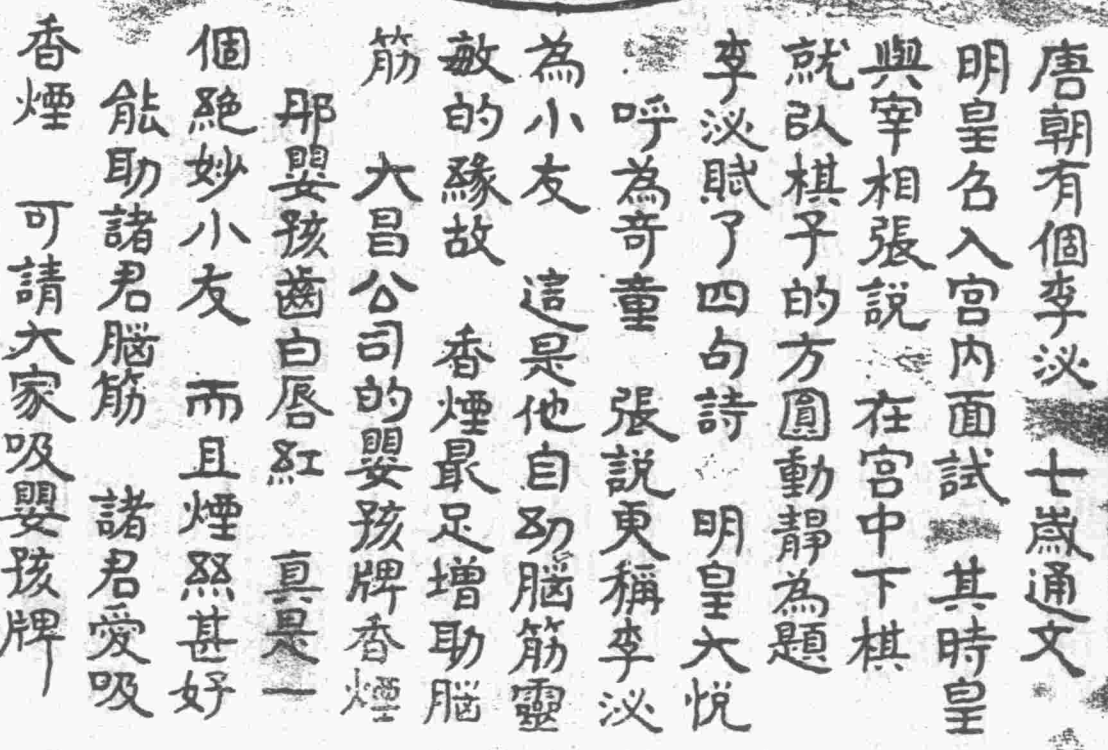 唐朝有個李泌 七歲通文
明皇召入宮內面試 其時皇
與宰相張説 在宮中下棋
就以棋子的方圓動靜為題
李泌賦了四句詩 明皇大悅
呼為奇童 張説更稱李泌
為小友 這是他自幼腦筋靈
敏的緣故 香煙最足增助腦
筋 大昌公司的嬰孩牌香煙
那嬰孩齒白唇紅 真是一
個絕妙小友 而且煙絲甚好
能助諸君腦筋 諸君愛吸
香煙 可請大家吸嬰孩牌